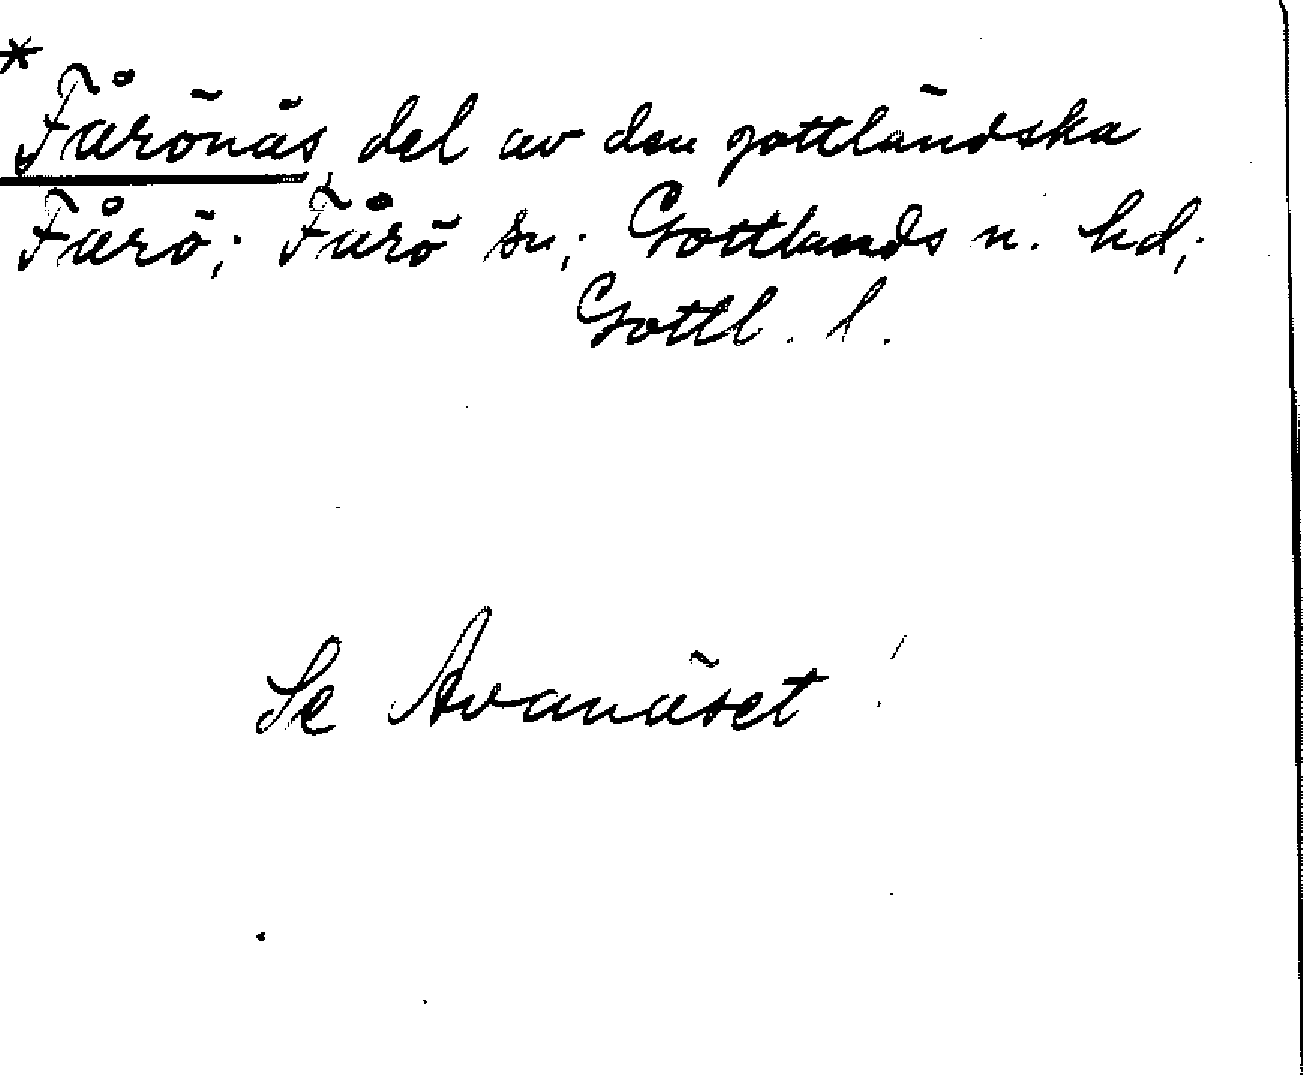 *
Fårönäs, del av den gottländska
Fårö; Fårö sn; Gottlands n. hd;
Gottl. l.
Se Avanäset!